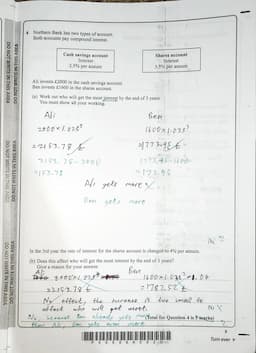 4 Northern Bank has two types of account.
Both accounts pay compound interest.
Cash savings account
Interest
2.5% per annum
Shares account
Interest
3.5% per annum
Ali invests £2000 in the cash savings account.
Ben invests £1600 in the shares account.
(a) Work out who will get the most interest by the end of 3 years.
You must show all your working.
Ali
Ben
2000×1.025³
1600×1.035³
=2153.78 £
=1773.95 £
2153.78-2000
1773.95-1600
=153.78
=173.95
Ali gets more
Ben gets more
In the 3rd year the rate of interest for the shares account is changed to 4% per annum.
(b) Does this affect who will get the most interest by the end of 3 years?
Give a reason for your answer.
Ali
Ben
2000×1.025³
1600×1.035²×1.04
=2153.78 £
=1782.52 £
No effect, the increase is too small to
affect who will get most.
Ben already gets
(Total for Question 4 is 5 marks)
than Ali, Ben gets even more
Turn over
DO NOT WRITE IN THIS AREA
DO NOT WRITE IN THIS AREA
DO NOT WRITE IN THIS AREA